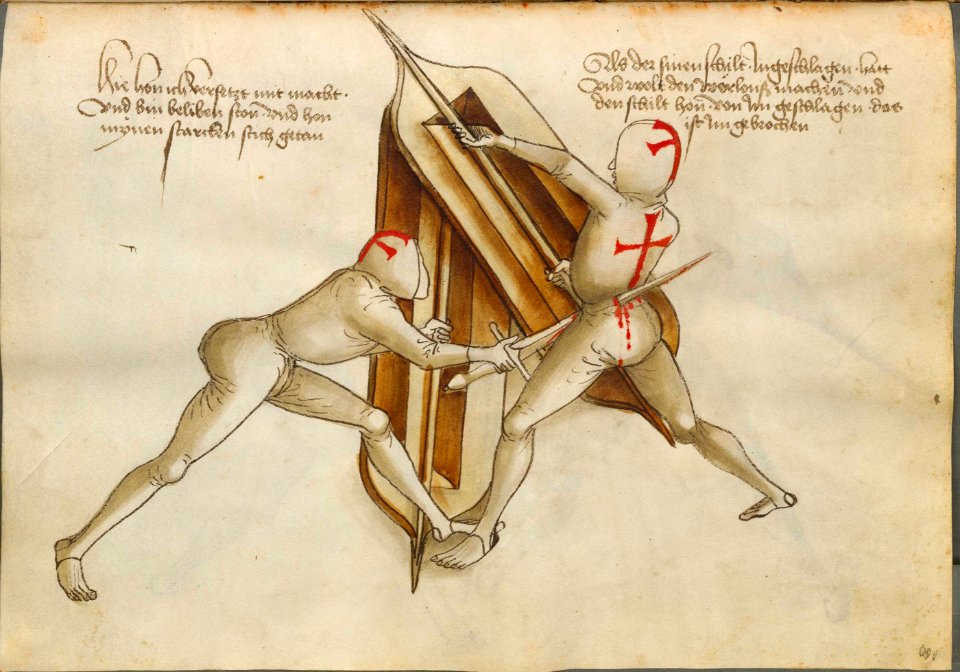 Hie hon ich versetzt mit macht ·
Vnd bin beliben ston · vnd hon
mynen starcken stich getan
Als der sinen schilt Ingeschlagen · hatt
Vnd wolt den vorlouß machen · vnd
den schilt hon · von Im geschlagen · das
ist Im gebrochen